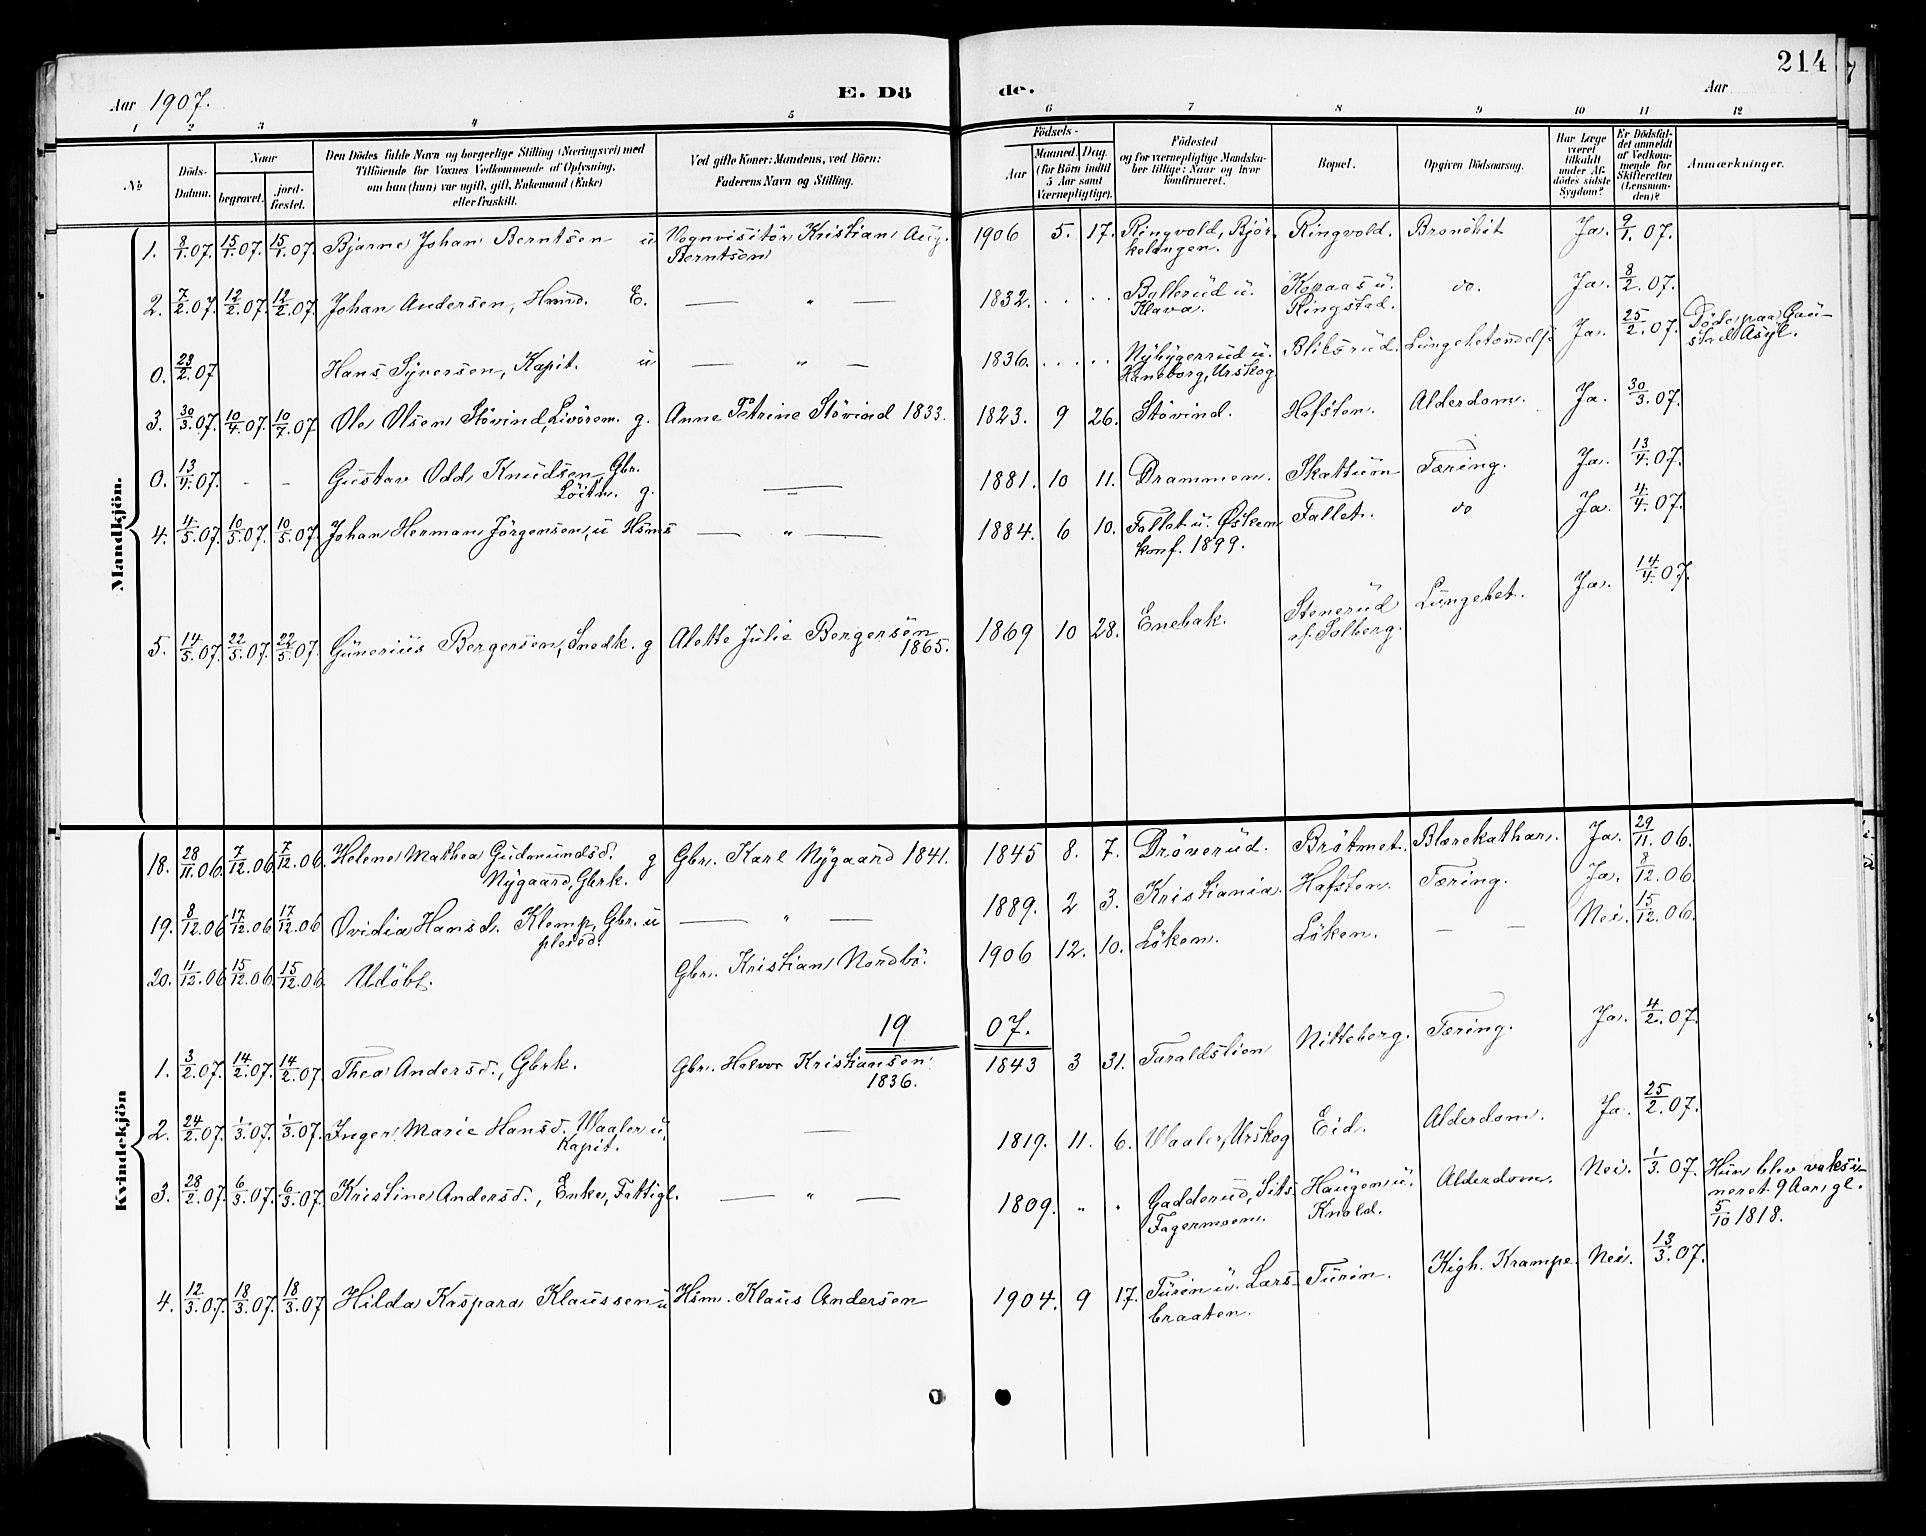 214
Aar 1907. E. Dö de. Aar
1 2 3 4 5 6 7 8 9 10 11 12
№
Döds-
Datum.
Naar
begravet. jord-
fæstet.
Den Dödes fulde Navn og borgerlige Stilling (Næringsvei) med
Tilföiende for Voxnes Vedkommende af Oplysning,
om han (hun) var ugift, gift, Enkemand (Enke)
eller fraskilt.
Ved gifte Koner: Mandens, ved Börn:
Faderens Navn og Stilling.
Födsels-
Aar Maaned. Dag.
(for Börn indtil
5 Aar samt
Værnepligtige).
Födested
og for værnepligtige Mandska-
ber tillige: Naar og hvor
konfirmeret.
Bopæl.
Opgiven Dödsaarsag.
Har Læge
været
tilkaldt
under Af-
dödes sidste
Sygdom?
Er Dödsfal-
det anmeldt
af Vedkom-
mende for
Skifteretten
(Lensman-
den)?
Anmærkninger.
Mandkjön.
1. 8/1.07. 15/1.07. 15/1.07. Bjarne Johan Berntsen u Vognvisitör Kristian Aug. 1906 5. 17. Ringvold, Björ- Ringvold. Bronchit Ja. 9/1.07.
Berntsen kelangen.
2. 7/2.07. 12/2.07. 12/2.07. Johan Andersen, Hmd. E. — " — 1832. .. .. Bøllerud u. Kopaas u. do. Ja. 8/2.07.
Klava. Ringstad.
0. 23/2.07 Hans Syversen, Kapit. u — " — 1836. .. .. Nybygerrud u. Bliksrud. Lungebetændelse Ja. 25/2.07. Döde paa Gau-
Haneborg, Urskog stad Asyl.
3. 30/3.07. 10/4.07. 10/4.07. Ole Olsen Stövind, Livörem. g. Anne Petrine Stövind 1833. 1823. 9 26. Stövind. Hafsten. Alderdom. Ja. 30/3.07.
0. 13/4.07. - - Gustav Odd Knudsen, Gbr. — 1881. 10 11. Drammen. Skattum Tæring. Ja. 13/4.07.
Löitn. g.
4. 4/5.07. 10/5.07. 10/5.07. Johan Herman Jörgensen, u Hsms — " — 1884. 6 10. Fallet u. Øskem Fallet. do Ja. 4/4.07.
konf. 1899.
5. 14/5.07. 22/5.07. 22/5.07. Günerius Bergersen, Snedk. g Alette Julie Bergersen 1869 10 28. Enebak. Stenerud Lungebet. Ja. 14/4.07.
1865. af Solberg.
Kvindekjön
18. 28/11.06 7/12.06 7/12.06. Helene Mathea Gudmundsd. g Gbr. Karl Nygaard 1841. 1845 8. 7. Dröverud. Brötmet. Blærekathar. Ja. 29/11.06.
Nygaard, Gbrk.
19. 8/12.06 17/12.06 17/12.06 Ovidia Hansd. Klemp, Gbr. u — " — 1889. 2 3. Kristiania. Hafsten. Tæring. Ja. 8/12.06.
plesd.
20. 11/12.06 15/12.06. 15/12.06. Udöbt. Gbr. Kristian Nordbö. 1906 12. 10. Löken. Löken. — — Nei. 15/12.06.
19 07.
1. 3/2.07. 14/2.07. 14/2.07. Thea Andersd., Gbrk. Gbr. Halvor Kristiansen 1843 3 31. Taraldslien Nitteberg. Tæring. Ja. 4/2.07.
1836.
2. 24/2.07. 1/3.07. 1/3.07. Inger Marie Hansd. Waaler u, — 1819. 11. 6. Waaler, Urskog Eid. Alderdom. Ja. 25/2.07.
Kapit.
3. 28/2.07. 6/3.07. 6/3.07. Kristine Andersd., Enke, Fattigl. — " — 1809. " " Gadderud, Sits- Haugen u. Alderdom. Nei. 1/3.07. Hun blev vaksi-
Fagermoen. Knold. neret 9 Aar gl.
5/10 1818.
4. 12/3.07. 18/3.07. 18/3.07 Hilda Kaspara Klaussen u Hsm. Klaus Andersen 1904. 9 17. Turin u. Lars- Turin. Kigh. Krampe. Nei. 13/3.07.
braaten.